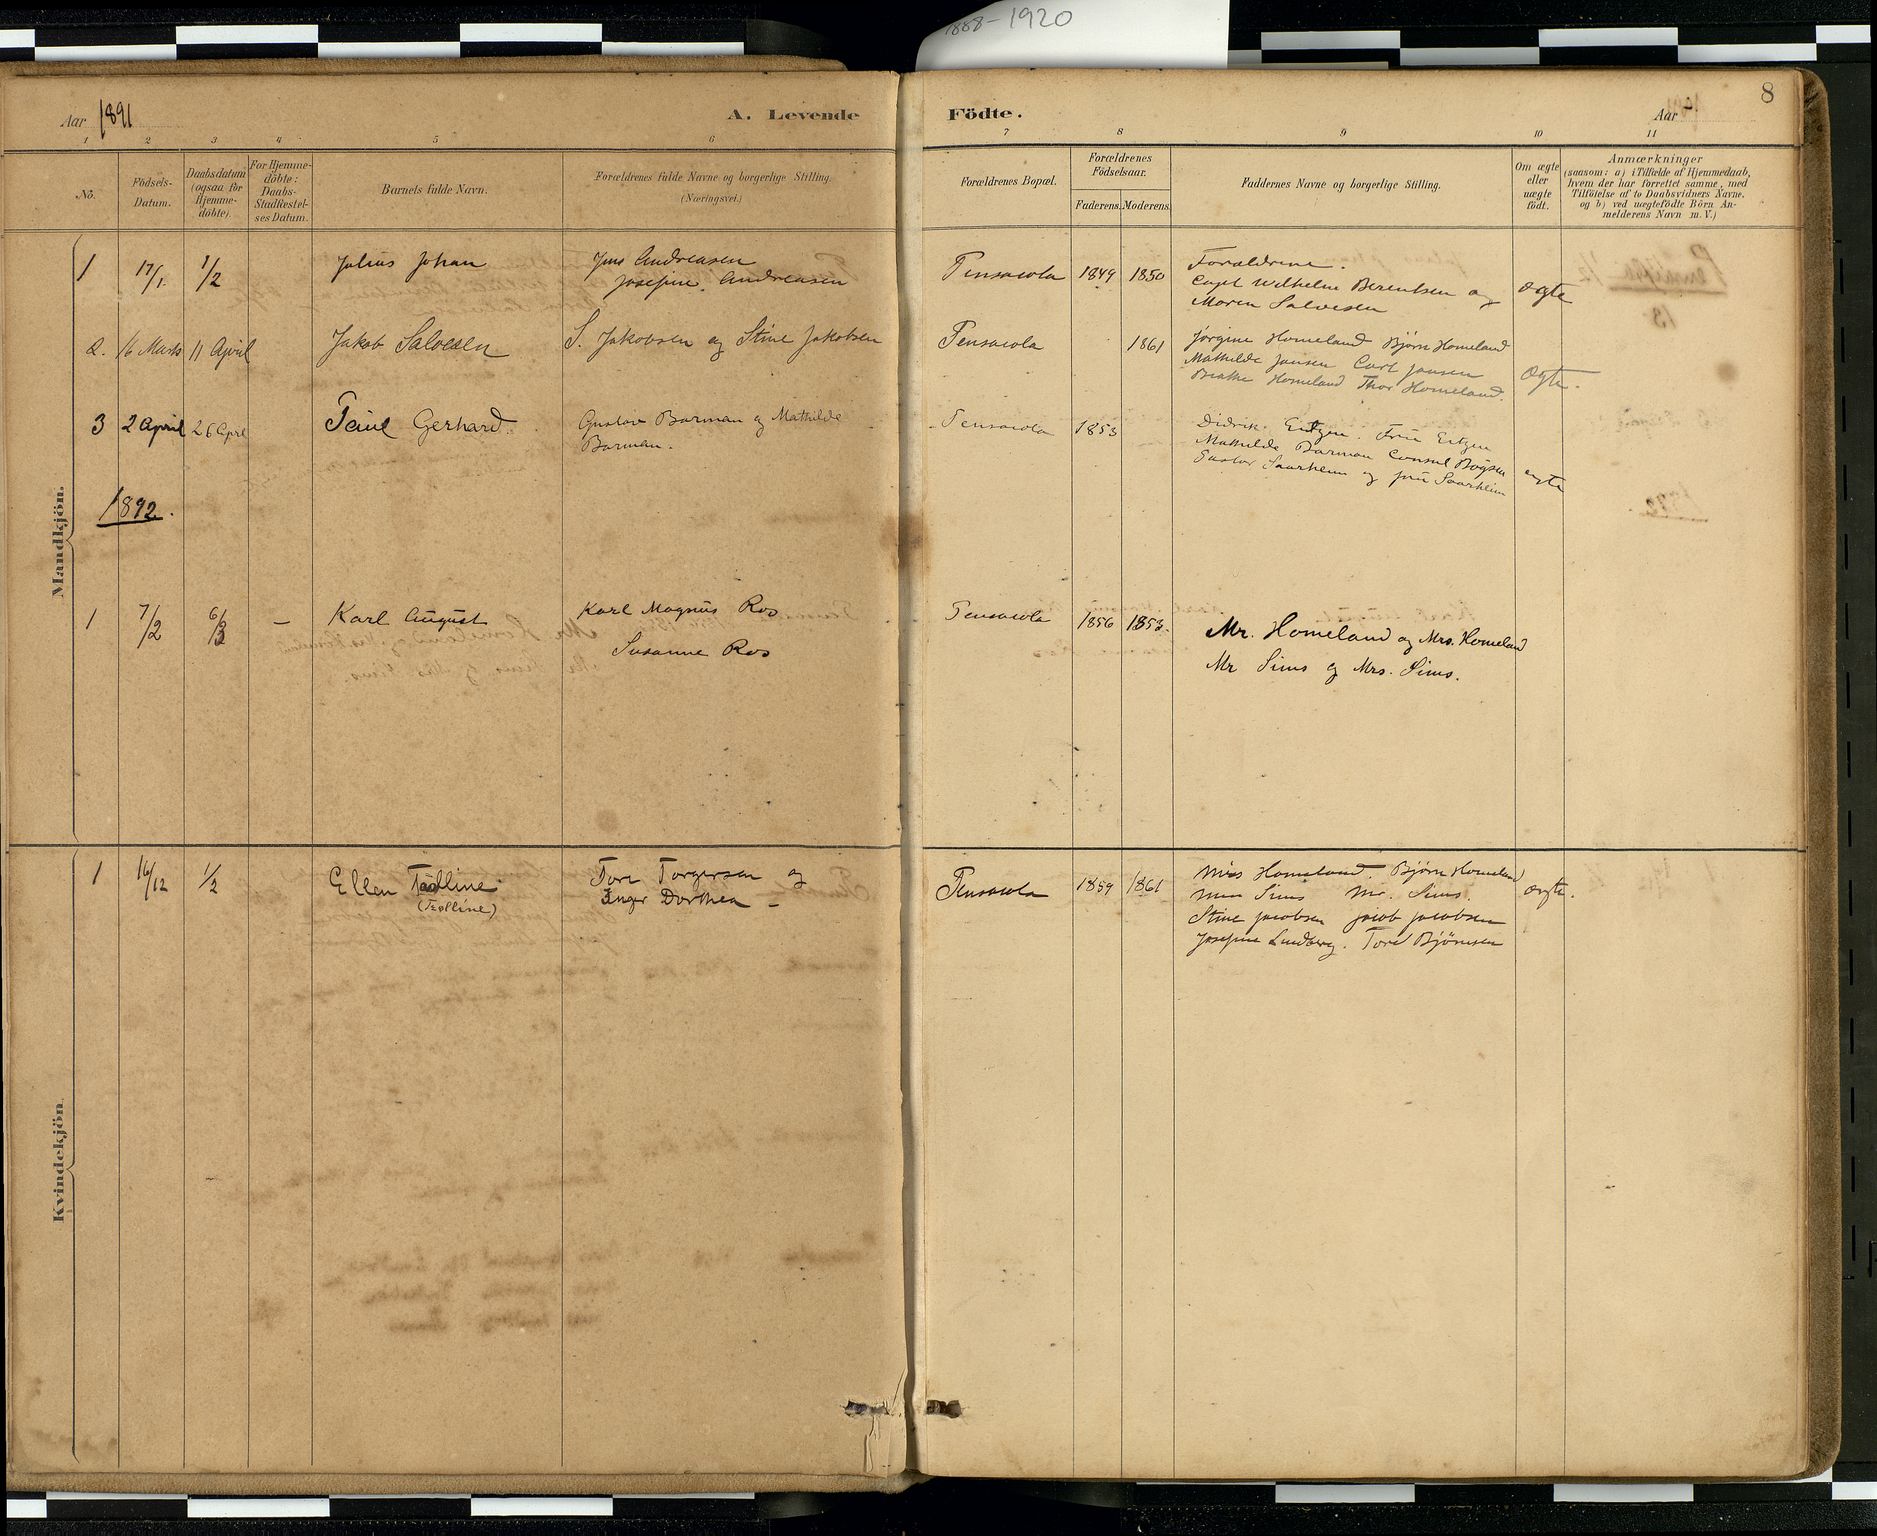 1888-1920
8
Aar 1891
A. Levende Födte.
Aar
1 2 3 4 5 6 7 8 9 10 11
Nō.
Födsels-
Datum.
Daabsdatum
(ogsaa for
Hjemme-
döbte).
For Hjemme-
döbte:
Daabs-
Stadfæstel-
ses Datum.
Barnets fulde Navn.
Forældrenes fulde Navne og borgerlige Stilling.
(Næringsvei.)
Forældrenes Bopæl.
Forældrenes
Födselsaar.
Faderens. Moderens.
Faddernes Navne og borgerlige Stilling.
Om ægte
eller
uægte
födt.
Anmærkninger
(saasom: a) i Tilfælde af Hjemmedaab,
hvem der har forrettet samme, med
Tilföielse af to Daabsvidners Navne.
og b) ved uægtefödte Börn An-
melderens Navn m. V.)
Mandkjön.
1 17/1. 1/2 Julius Johan
Jens Andreasen
Josefine Andreasen
Pensacola 1849 1850
Forældrene.
Capt Wilhelm Berentsen og
Maren Salvesen
ægte
2. 16 Marts 11 April Jakob Salvesen
S. Jakobsen og Stine Jakobsen
Pensacola 1861
Jørgine Homeland Bjørn Homeland
Mathilde Jansen Carl Jansen
Beathe Homeland Thor Homeland.
Ægte.
3 2 April 26 Aprl Paul Gerhard.
Gustav Barman og Mathilde
Barman.
Pensacola 1853
Didrik Eitzen. Frue Eitzen
Mathilde Barman Consul Bøysen
Gustav Saarheim og fru Saarheim
ægte
1892.
1 7/2 6/3 – Karl August
Karl Magnus Ros
Susanne Ros
Pensacola 1856 1853.
Mr. Homeland og Mrs. Homeland
Mr Sims og Mrs. Sims.
Kvindekjön.
1 16/12 1/2 Ellen Tolline
(Tolline)
Tore Torgersen og
Inger Dorthea –
Pensacola 1859 1861
Miss Homeland. Bjørn Homeland
Miss Sims Mr. Sims.
Stine Jacobsen Jacob Jacobsen
Josefine Lindberg. Tore Bjørnsen
ægte.